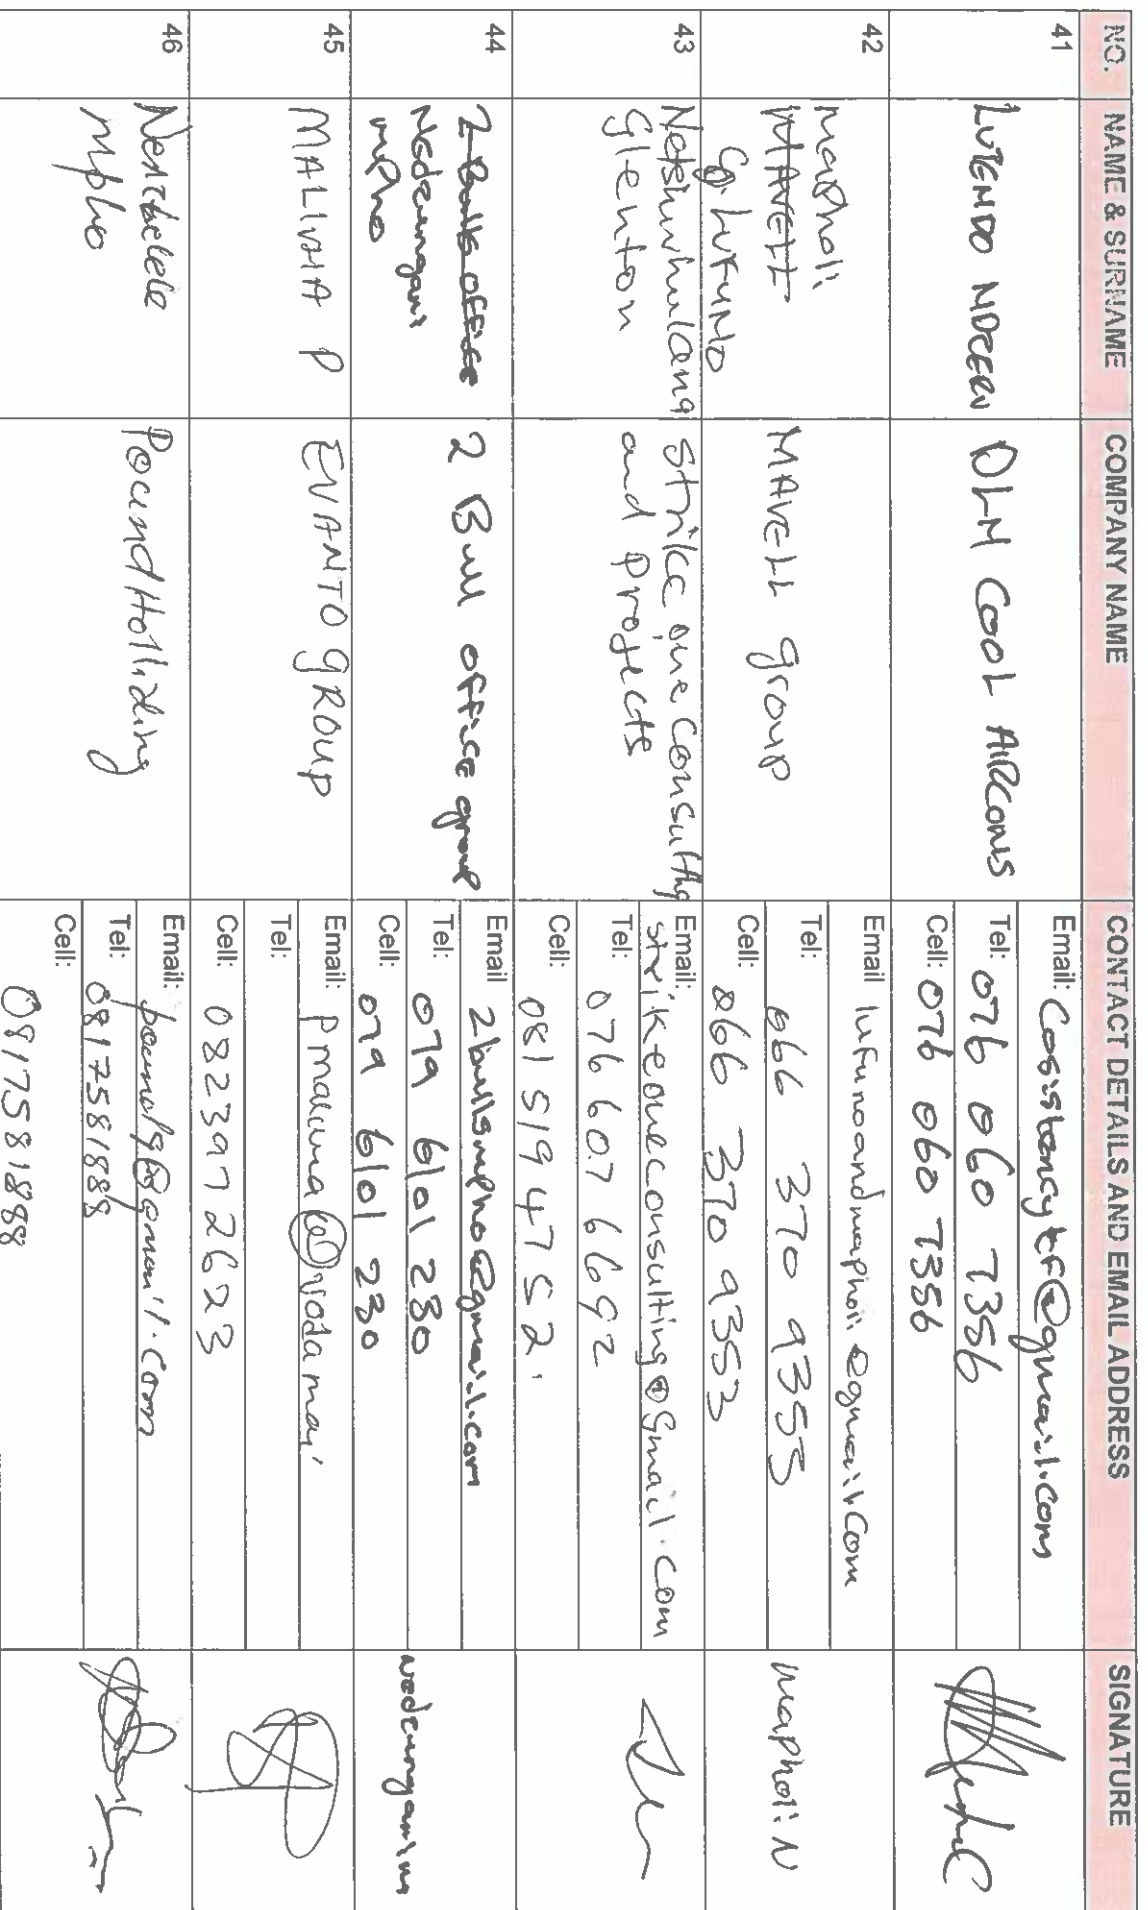 NO. NAME & SURNAME COMPANY NAME CONTACT DETAILS AND EMAIL ADDRESS SIGNATURE
41 LUTENDO DLM COOL AIRCONS
Email: Cosistencytf@gmail.com
Tel: 076 060 7356
Cell: 076 060 7356
42 mapholi MAVELL group
MAVELL
LUFUNO
Email lufunoandmapholi@gmail.com
Tel: 066 370 9353
Cell: 066 370 9353
mapholi N
43 Netshivhulang Strike one Consulting
Glenton and Projects
Email: strikeoneconsulting@gmail.com
Tel: 076 607 6692
Cell: 081 519 4752.
44 2 Bulls office 2 Bull office group
Nedzungani
mpho
Email 2bullsmpho@gmail.com
Tel: 079 6101 230
Cell: 079 6101 230
45 MALIMA P EVANTO GROUP
Email: pmalima@vodamai
Tel:
Cell: 082 397 2623
46 Pound Holliding
Mpho
Email:
Tel: 0817581888
Cell: 0817581888